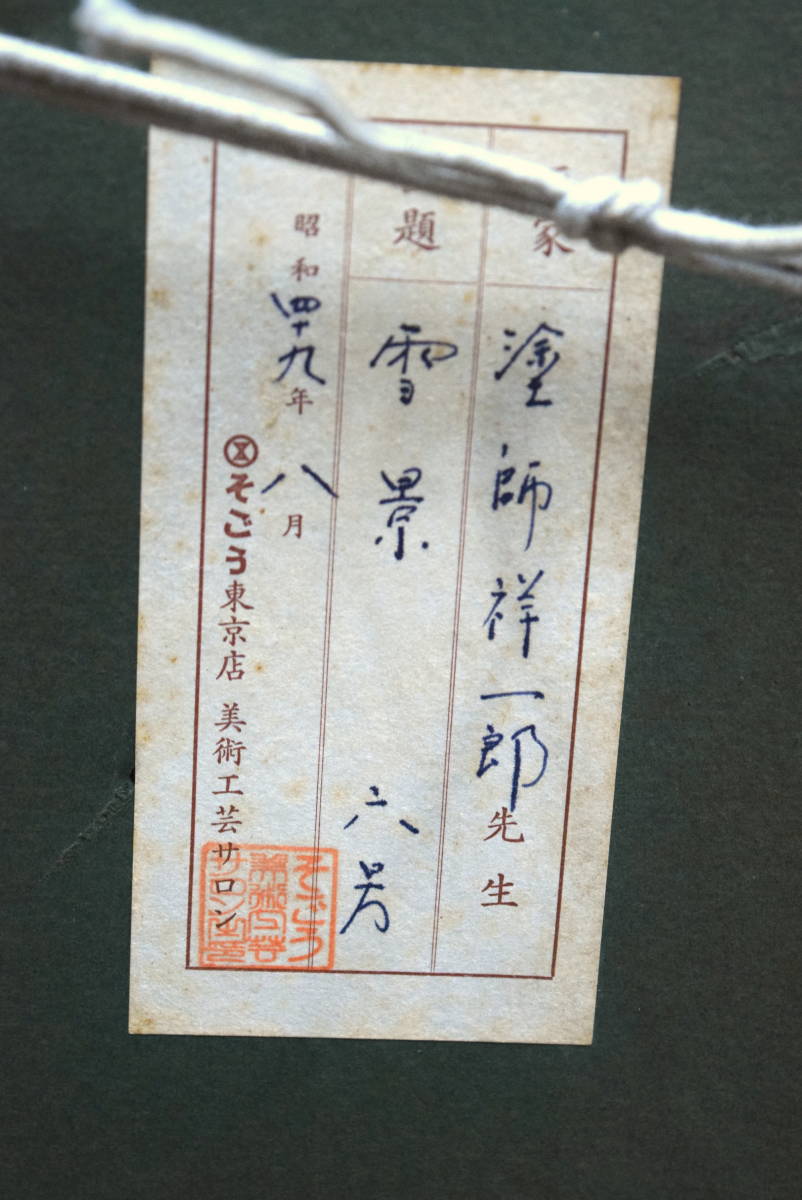 家 塗師祥一郎先生
題 雪景 六号
昭和四十九年八月
そごう東京店 美術工芸サロン
そごう
美術工芸
サロン之印